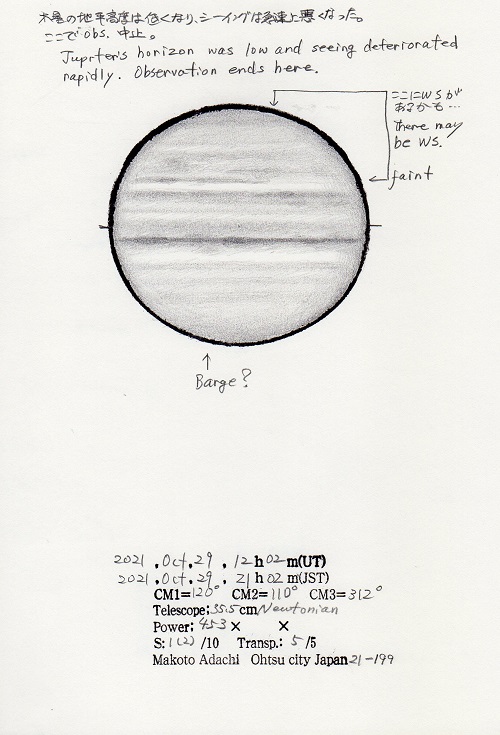 木星の地平高度は低くなり、シーイングは急速に悪くなった。
ここでobs. 中止。
Juprter's horizon was low and seeing deteriorated
rapidly. Observation ends here.
ここにWSが
あるかも…
There may
be WS.
faint
Barge?
2021 , Oct, 29 , 12 h 02 m(UT)
2021 , Oct, 29 , 21 h 02 m(JST)
CM1=120° CM2=110° CM3=312°
Telescope;35.5cm/Newtonian
Power: 453× ×
S: 1(2) /10 Transp.: 5 /5
Makoto Adachi Ohtsu city Japan 21-199